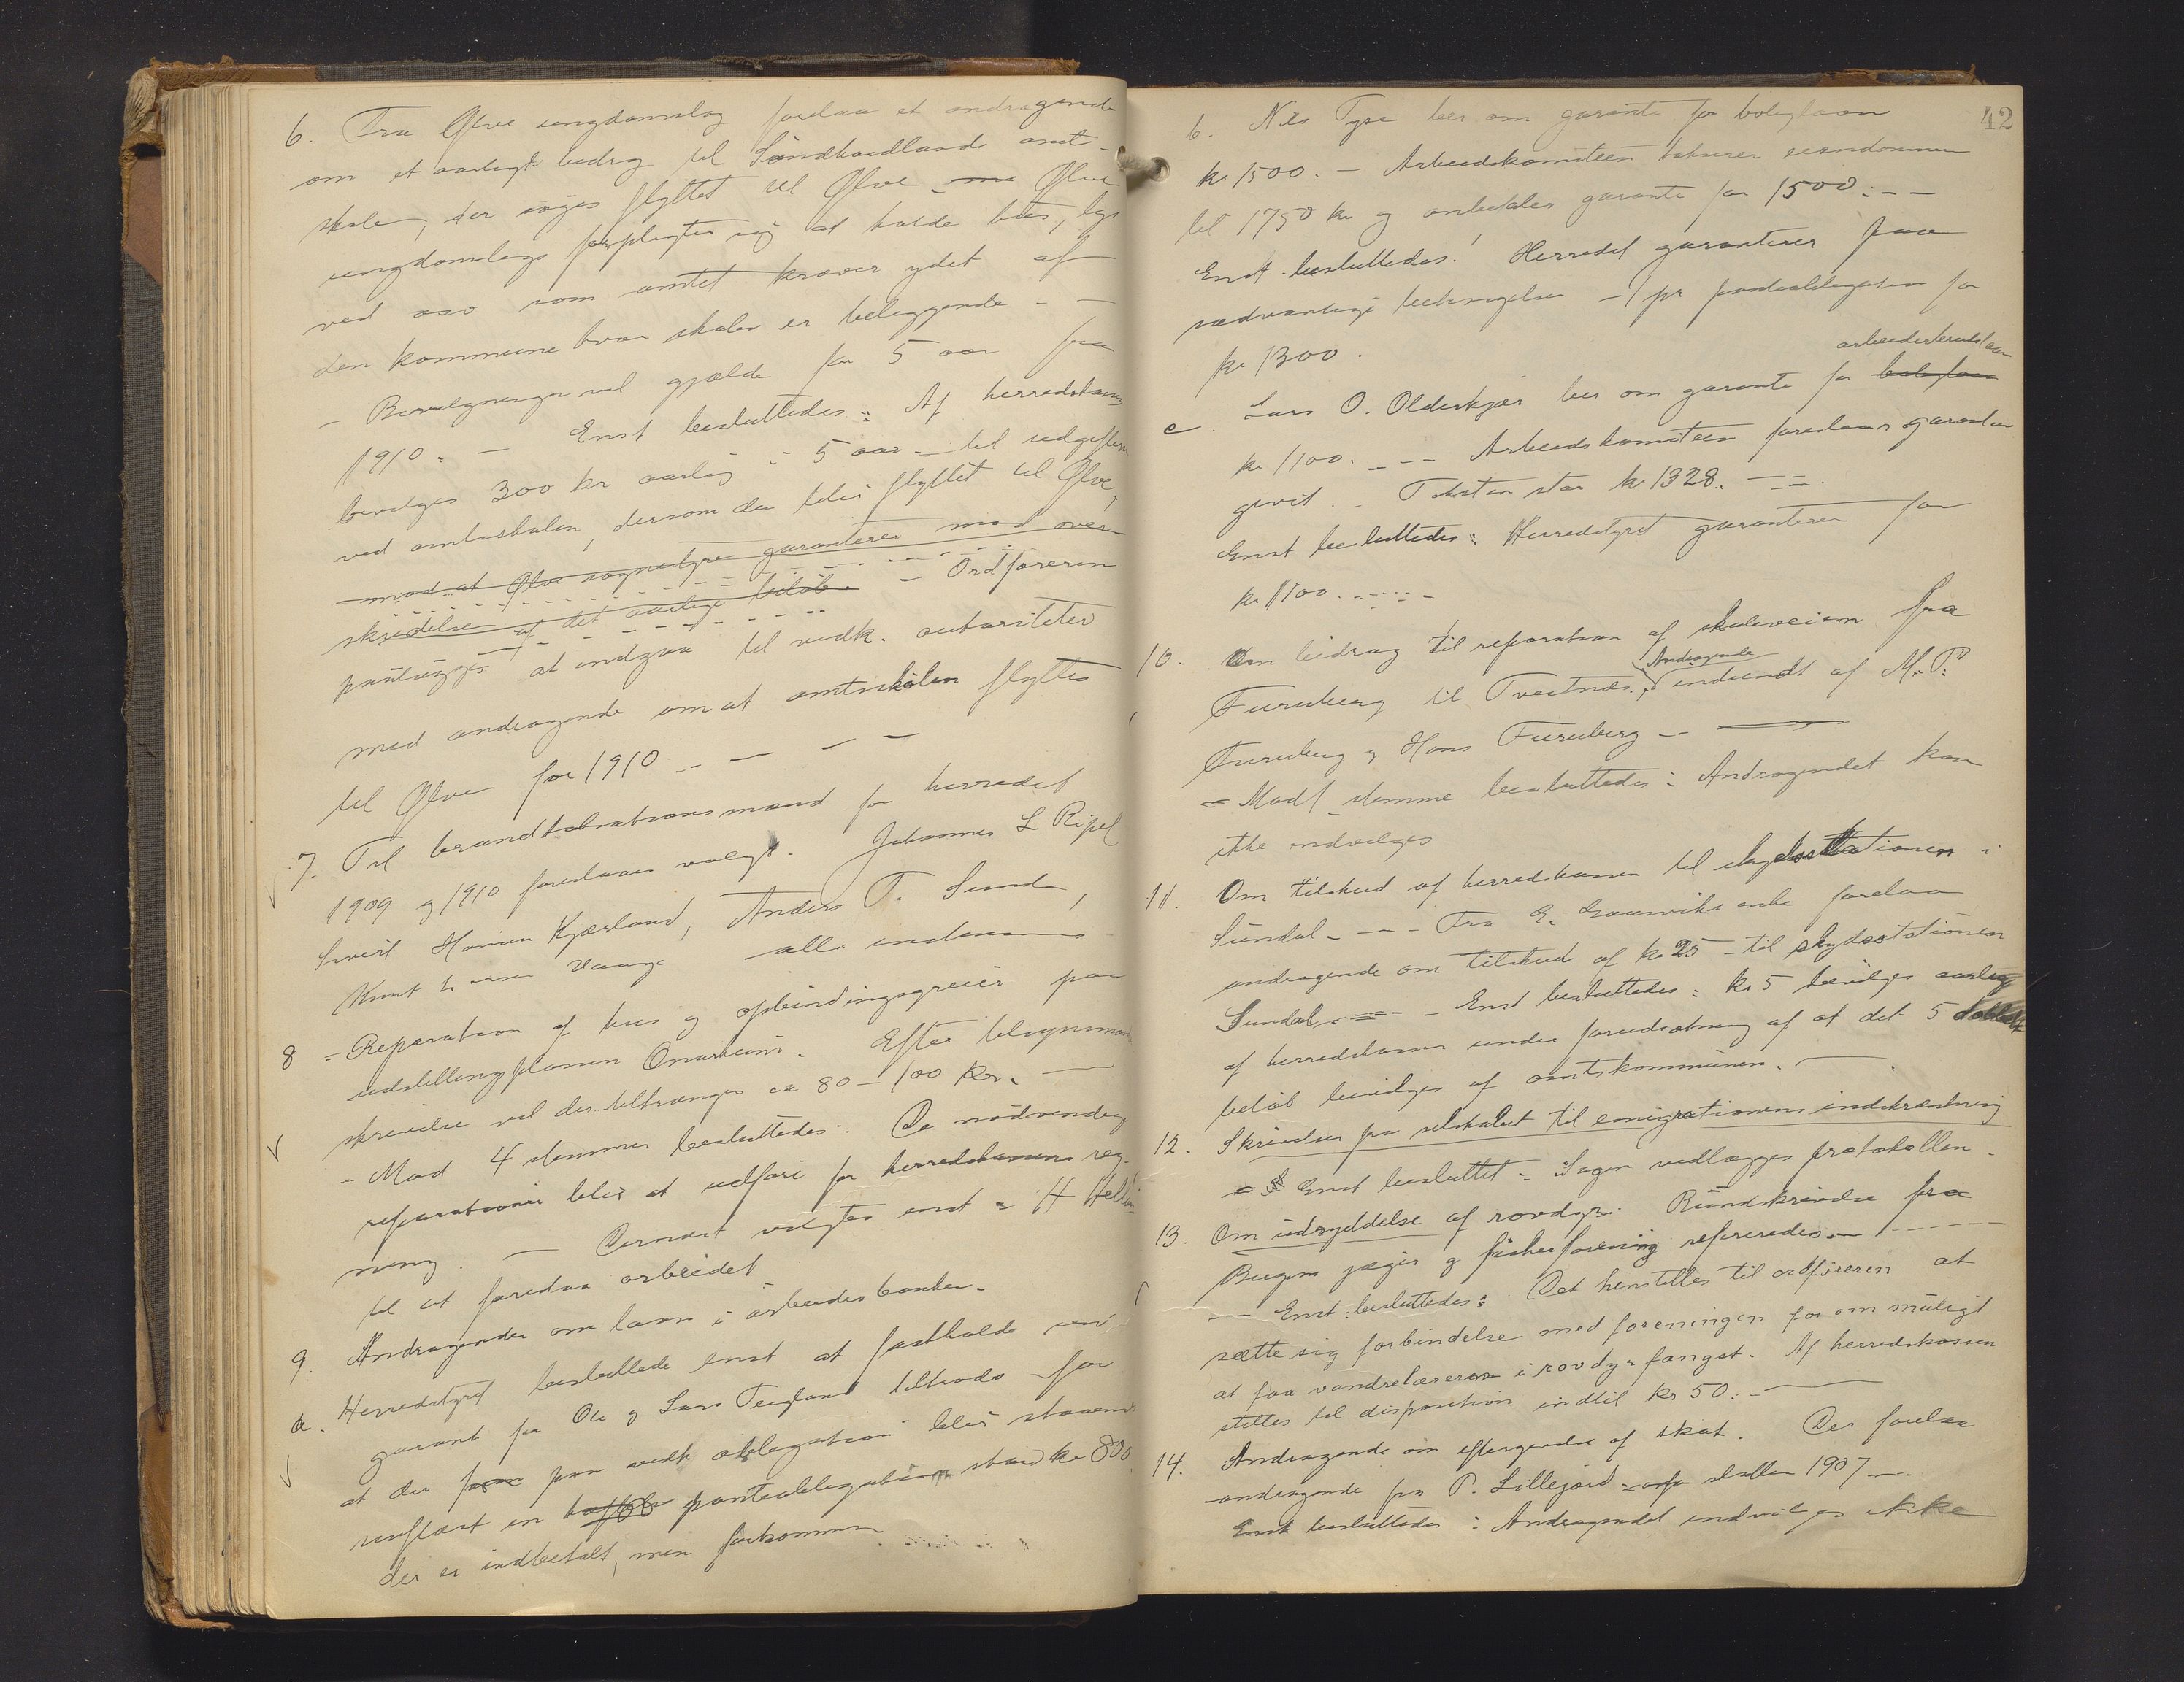 6. Fra Ølve ungdomslag forelaa et andragende
om et aarligt bidrag til Søndhordlands amts-
skole, der søges flyttet til Ølve – Ølve
ungdomslags forpligter sig at holde hus, lys
ved osv som amtet kræver ydet af
den kommune hvor skolen er beliggende – –
– Bevilgningen vil gjælde for 5 aar fra
1910. – Enst besluttedes: Af herredskassen
bevilges 300 kr aarlig i 5 aar – til udgifterne
ved amtsskolen, dersom den blir flyttet til Ølve,
mod at Ølve sognestyre garanterer mod over-
skridelse af det aarlige beløb – Ordføreren
paalægges at indgaa til vedk. autoriteter
med andragende om at amtsskolen flyttes
til Ølve for 1910 – – – –
7. Til brandtakstationsmænd for herredet
1909 og 1910 foreslaaes valgt. Johannes L Ripel
Sivert Hansen Kjærland, Anders T. Sunde,
Knut Vaage alle
8 – Reparation af hus og opbindingsgreier paa
udstillingsplassen Onarheim. Efter tilsynsmands
skrivelse vil der tiltrænges ca 80 – 100 kr. –
– Mod 4 stemmer besluttedes: De nødvendige
reparationer blir at udføre for herredskassens reg-
ning. – Dernæst valgtes enst = H
til at forestaa arbeidet
9. Andragender om laan i arbeiderbanken.
a. Herredstyret besluttede enst at fastholde sin
garanti for Ole og Lars Teigland tiltrods for
at der paa vedk obligation blir staaende
uaflæst en panteobligation stor kr 800
der er indbetalt, men forkommen
42
b. Nils Tyse ber om garanti for boliglaan
kr 1500. – Arbeidskomiteen takserer eiendommen
til 1750 kr og anbefaler garanti for 1500: – –
Enst. besluttedes: Herredet garanterer paa
sædvanlige betingelser – 1 pr panteobligation for
kr 1300.
arbeiderbruklaan
c. Lars O. Olderkjær ber om garanti for boliglaan
kr 1100. – – – Arbeidskomiteen foreslaar garantien
givet. – Taksten stor kr 1328. – – –
Enst besluttedes: Herredstyret garanterer for
kr 1100. – – –
10. Om bidrag til reparation af skoleveien fra
Andragende
Furuberg til Tveitnæs, indsendt af M. P.
Furuberg og Hans Furuberg – – –
= Mod 1 stemme besluttedes: Andragendet kan
ikke indvilges
11. Om tilskud af herredskassen til skydsstationen i
Sundal – – – Fra E. enke forelaa
andragende om tilskud af kr 25 – til skydsstationen
Sundal. – – – Enst besluttedes: kr 5 bevilges aarlig
af herredskassen under forudsætning af at det 5 dobbelte
beløb bevilges af amtskommunen. –
12. Skrivelser fra selskabet til emigrationens indskrænkning
– Enst besluttet: Sagen vedlægges protokollen.
13. Om udryddelse af rovdyr. Rundskrivelse fra
Bergens jæger og fiskerforening refereredes – – – –
– – Enst. besluttedes: Det henstilles til ordføreren at
sætte sig forbindelse med foreningen for om muligt
at faa vandrelæreren i rovdyrfangst. Af herredskassen
stilles til disposition indtil kr 50: –
14. Andragende om eftergivelse af skat. Der forelaa
andragende fra P. Lillejord – skatten 1907 –.
Enst besluttedes: Andragendet indvilges ikke